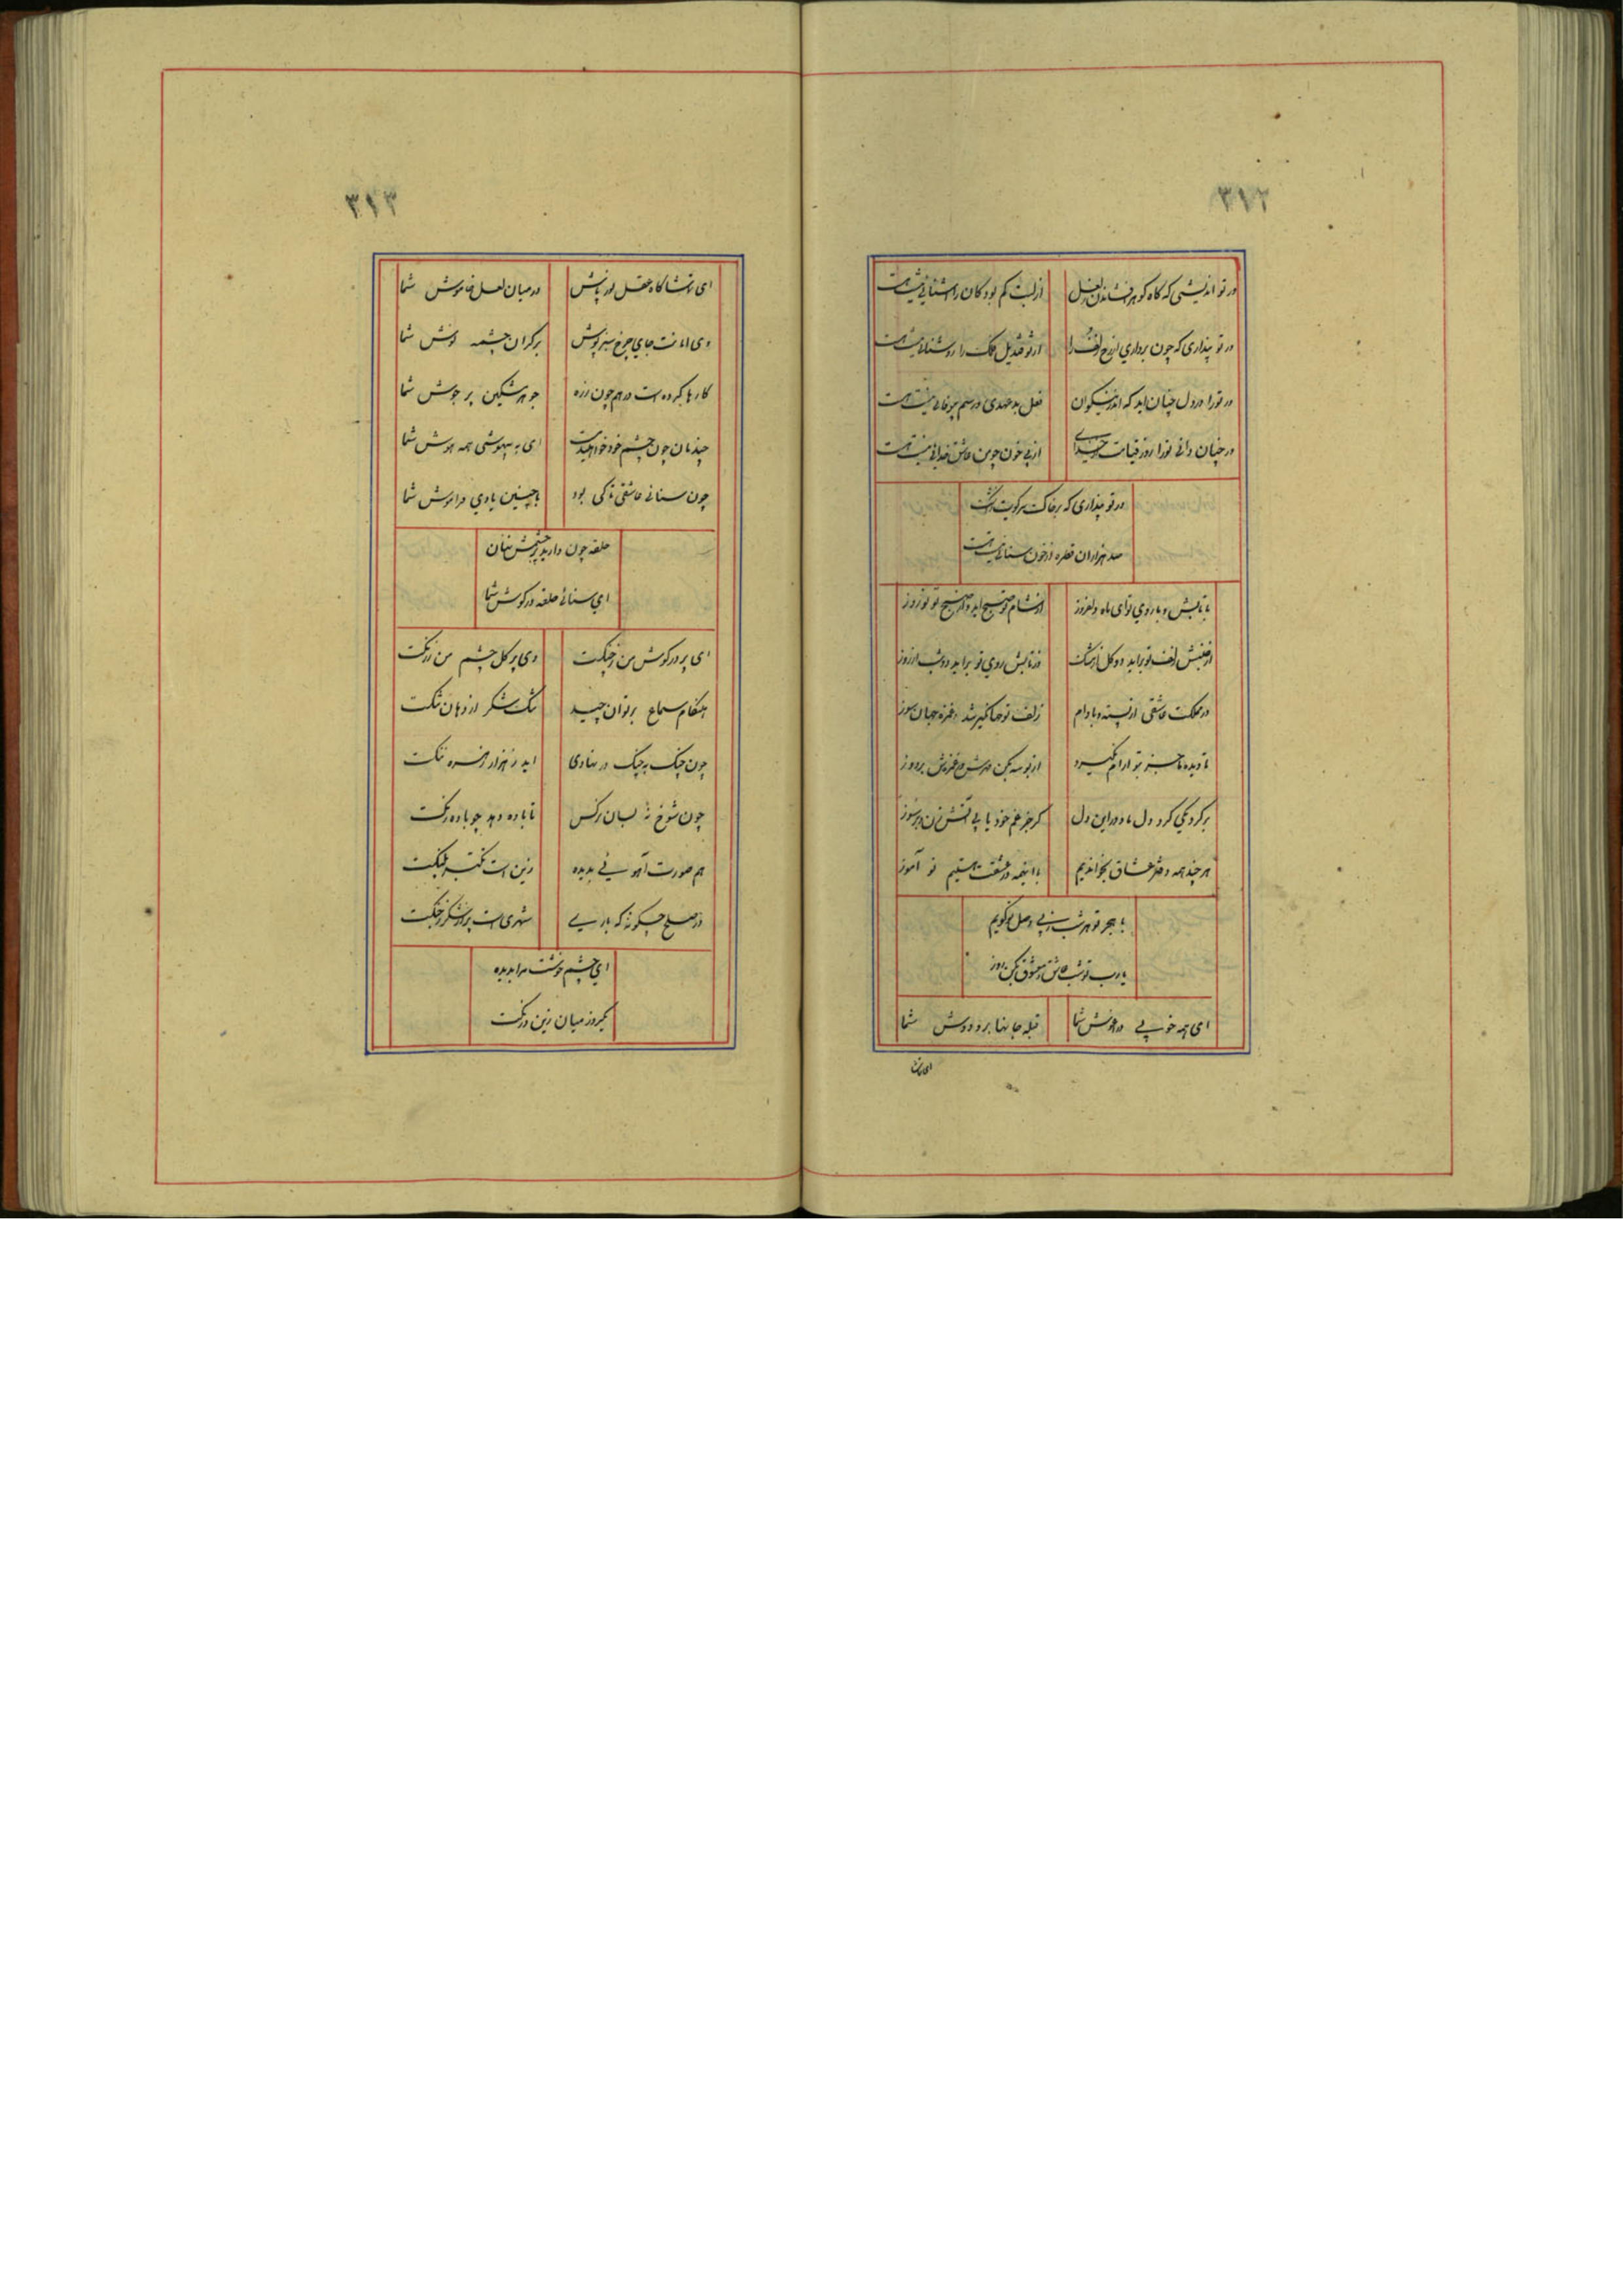 ۳۱۲
در تو اندیشی که گاه گوهر افشاندن ز لعل از لبت کم بود کان را آشنائی نیست هست
ور تو پنداری که چون برداری از رخ زلف را از تو قندیل فلک را روشنائی نیست هست
ور تو را در دل چنان اید که اندر نیکوان فعل بد عهدی و رسم بیوفائی نیست هست
ور چنان دانی تو را روز قیامت از خدای از پی خون چو من عاشق جدائی نیست هست
ور تو پنداری که بر خاک سر کویت ز اشک
صد هزاران قطره از خون سنائی نیست هست
با تابش و با روی تو ای ماه دلفروز از شام تو صبح اید و از صبح تو نوروز
از جنبش زلف تو براید دو گل از مشک وز تابش روی تو براید دو شب از روز
در مملکت عاشقی از پسته و بادام زلف تو جهانگیر شد و غمزه جهان سوز
تا دیده ما جز بتو آرام نگیرد از بوسه بکن مهرش و غمزش بردوز
بر گرد یکی گرد دل ما و در این دل گر جز غم خود یابی آتش زن و برسوز
هر چند همه دفتر عشاق بخواندیم با اینهمه در عشقت هستیم نو آموز
با هجر تو هر شب ز پی وصل تو گویم
یارب تو شب عاشق و معشوق مکن روز
ای همه خوبی در آغوش شما قبله جانها بر و دوش شما
ای تماشا
۳۱۳
ای تماشا گاه عقل نور پاش در میان لعل خاموش شما
وی امانت جای چرخ سبز پوش بر کران چشمه نوش شما
کارها کرده است در هم چون زره جوهر مشکین پر جوش شما
چند مان چون چشم خود خواهید مست ای به بیهوشی همه هوش شما
چون سنائی عاشقی تا کی بود با چنین یادی فراموش شما
حلقه چون دارید بر چشمش نهان
ای سنائی حلقه در گوش شما
ای پر در گوش من ز چنگت وی پر گل چشم من ز رنگت
هنگام سماع بر توان چید تنگ شکر از دهان تنگت
چون چنگ به چنگ در نهادی اید ز هزار زهره ننگت
چون شوخ نه بسان نرگس تا باده دهد چو باده رنگت
هم صورت آهوئی بدیده زین است تکبر پلنگت
در صلح چگونه که باری شهری است پر از شکر ز جنگت
ای چشم خوشت مرا بدیده
یکروز میان زین و رنگت